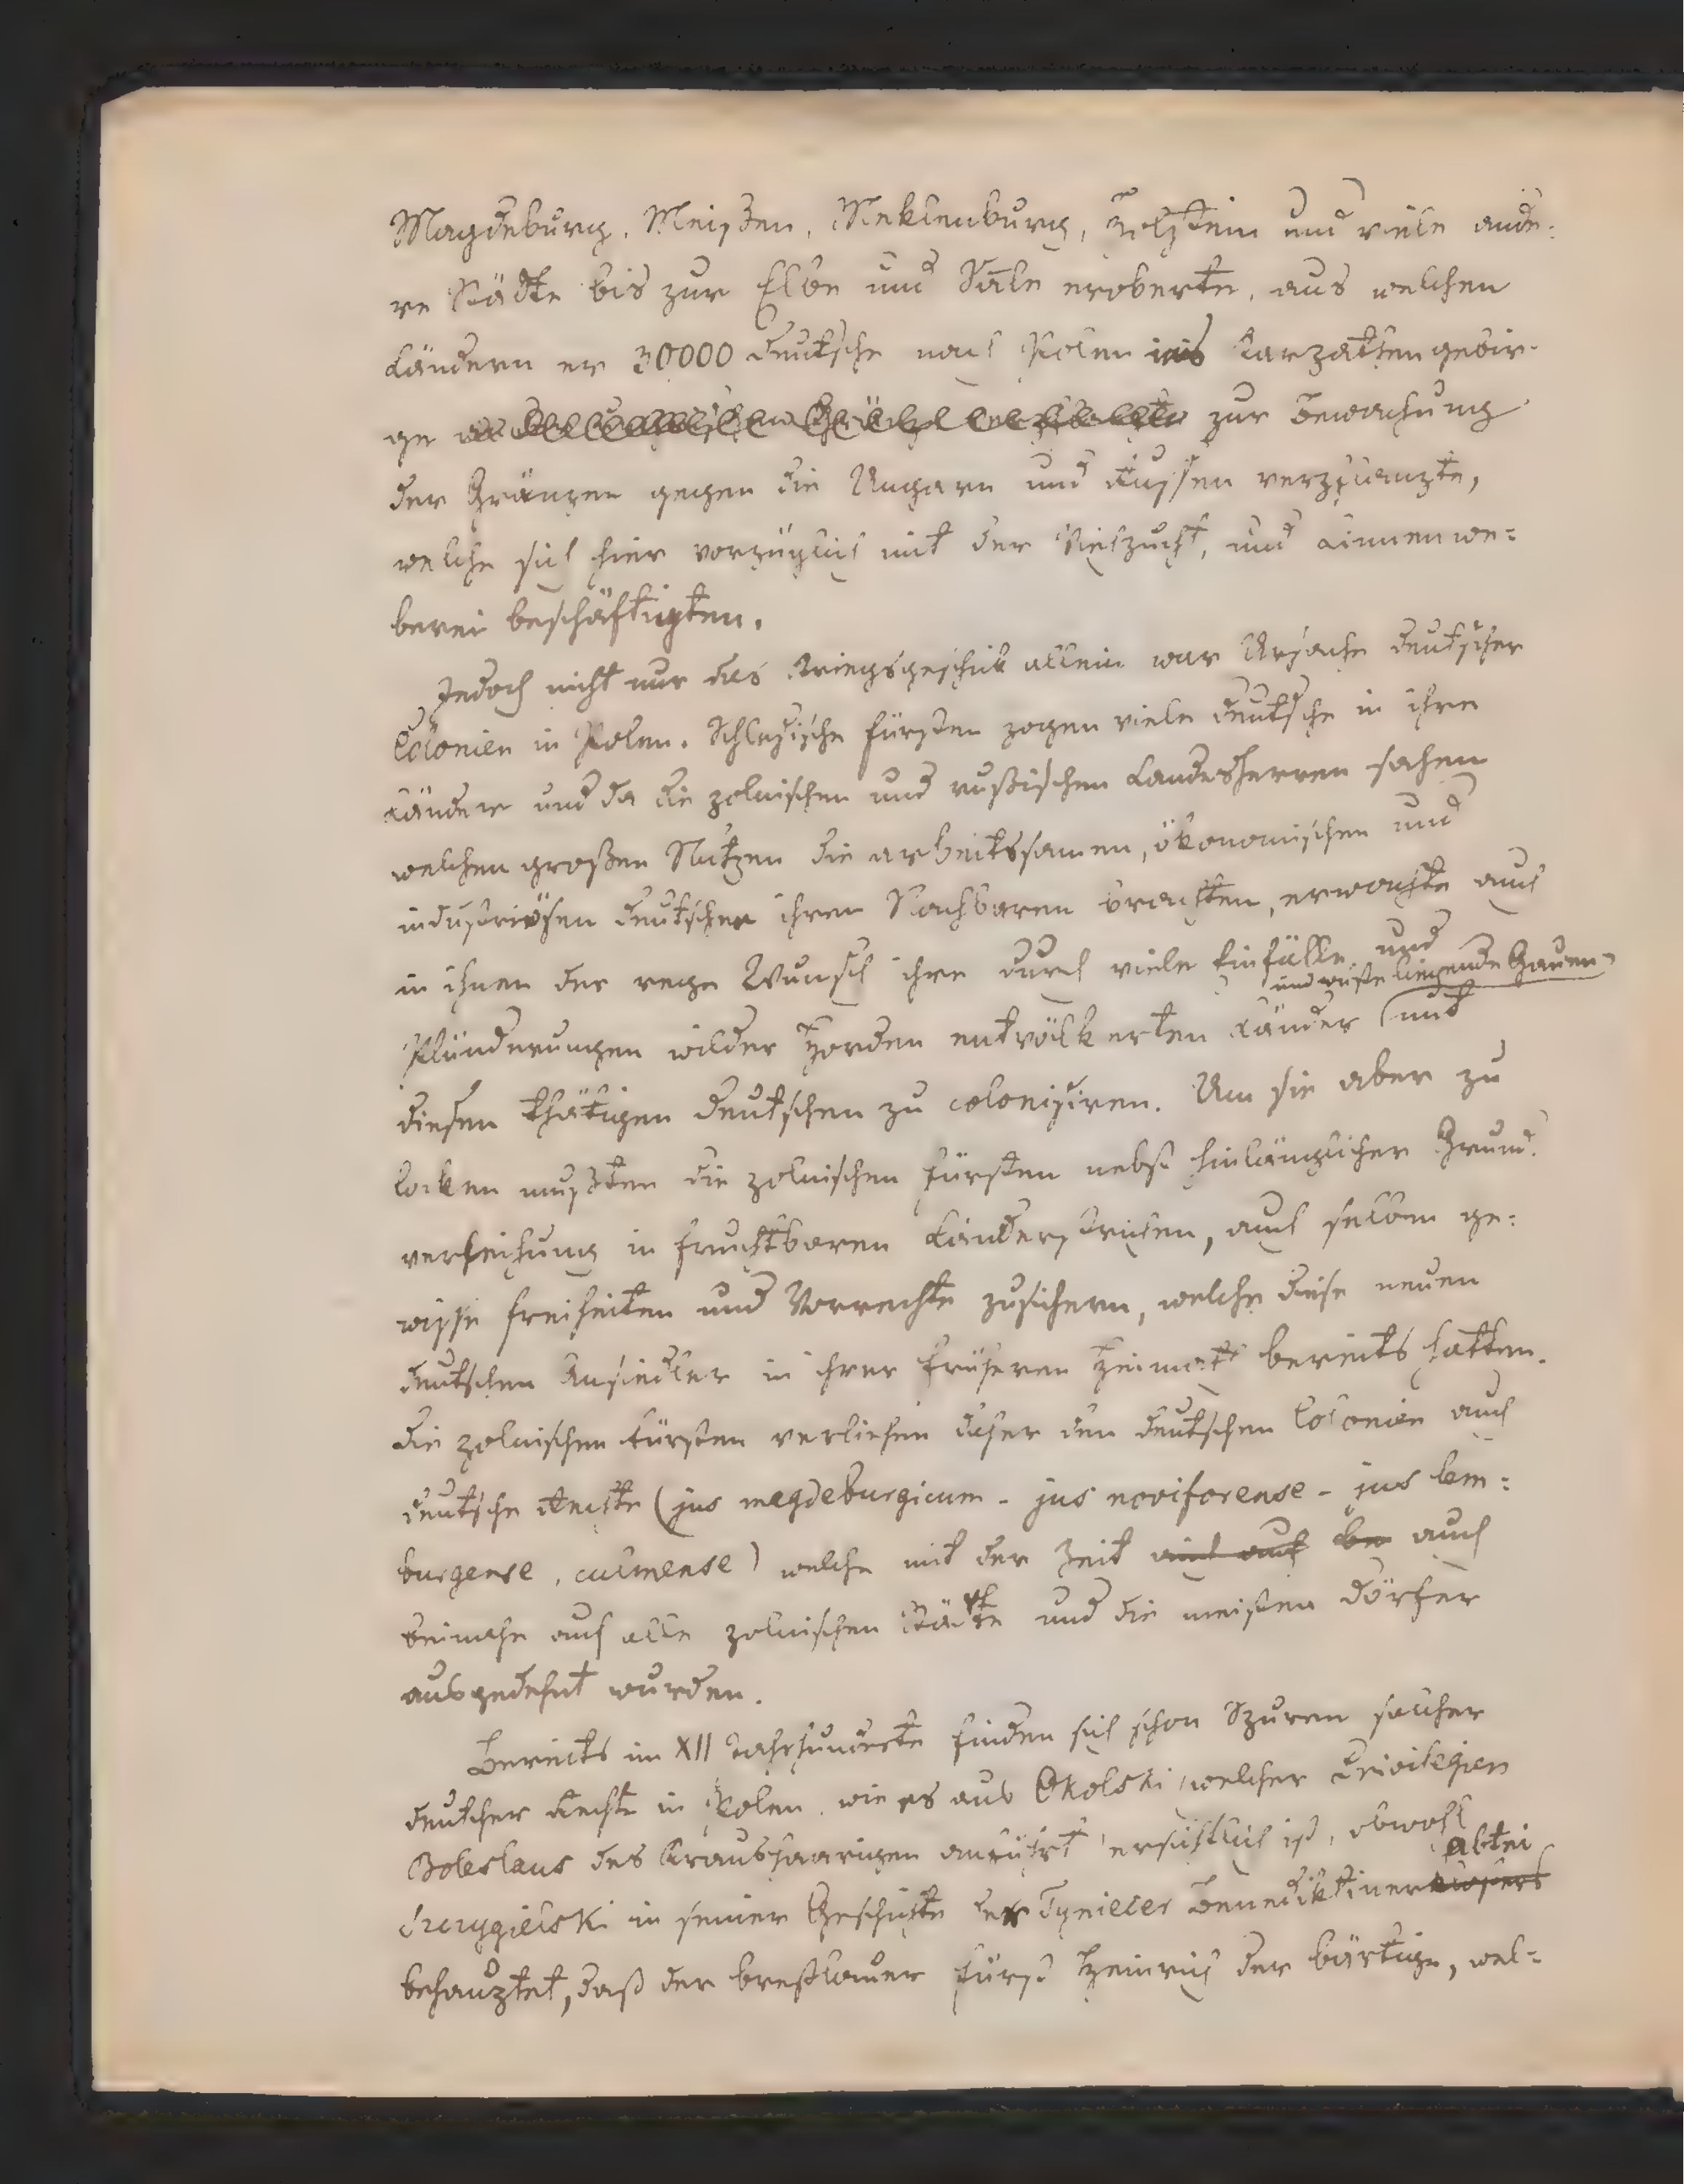 Magdeburg, Meißen, Meklenburg, Holstein und viele ande-
re Städte bis zur Elbe und Sale eroberte, aus welchen
Ländern er 30000 Deutsche nach Polen ins Karpathengebir-
ge zur Bewachung
der Gränzen gegen die Ungarn und Russen verpflanzte,
welche sich hier vorzüglich mit der Viehzucht, und Linnenwe-
berei beschäftigten.
Jedoch nicht nur das Kriegsgeschik allein war Ursache deutscher
Colonien in Polen. Schlesische Fürsten zogen viele Deutsche in ihre
Länder und da die polnischen und rußischen Landesherren sahen
welchen großen Nutzen die arbeitssamen, ökonomischen und
industriösen Deutschen ihren Nachbaren brachten, erwachte auch
in ihnen der rege Wunsch ihre durch viele Einfälle und
und wüste liegende Gauen
Plünderungen wilder Horden entvölkerten Länder mit
diesen thätigen Deutschen zu colonisiren. Um sie aber zu
locken mußten die polnischen Fürsten nebst hinlänglicher Grund-
verleihung in fruchtbaren Länderstrichen, auch selben ge-
wisse Freiheiten und Vorrechte zusichern, welche diese neuen
deutschen Ansiedler in ihrer früheren Heimath bereits hatten.
Die polnischen Fürsten verliehen daher den deutschen Colonien auch
deutsche Rechte (jus magdeburgicum - jus noviforense - jus lem-
burgense, culmense) welche mit der Zeit auch auf be auch
beinahe auf alle polnischen Städte und die meisten Dörfer
ausgedehnt wurden.
Bereits im XII Jahrhunderte finden sich schon Spuren solcher
deutscher Rechte in Polen, wie es aus Okolski welcher Privilegien
Boleslaus des Kraushaarigen anführt ersichtlich ist, obwohl
abtei
Szczygielski in seiner Geschichte der Tyniecer Benediktiner
behauptet, daß der breßlauer Fürst Heinrich der bärtige, wel-